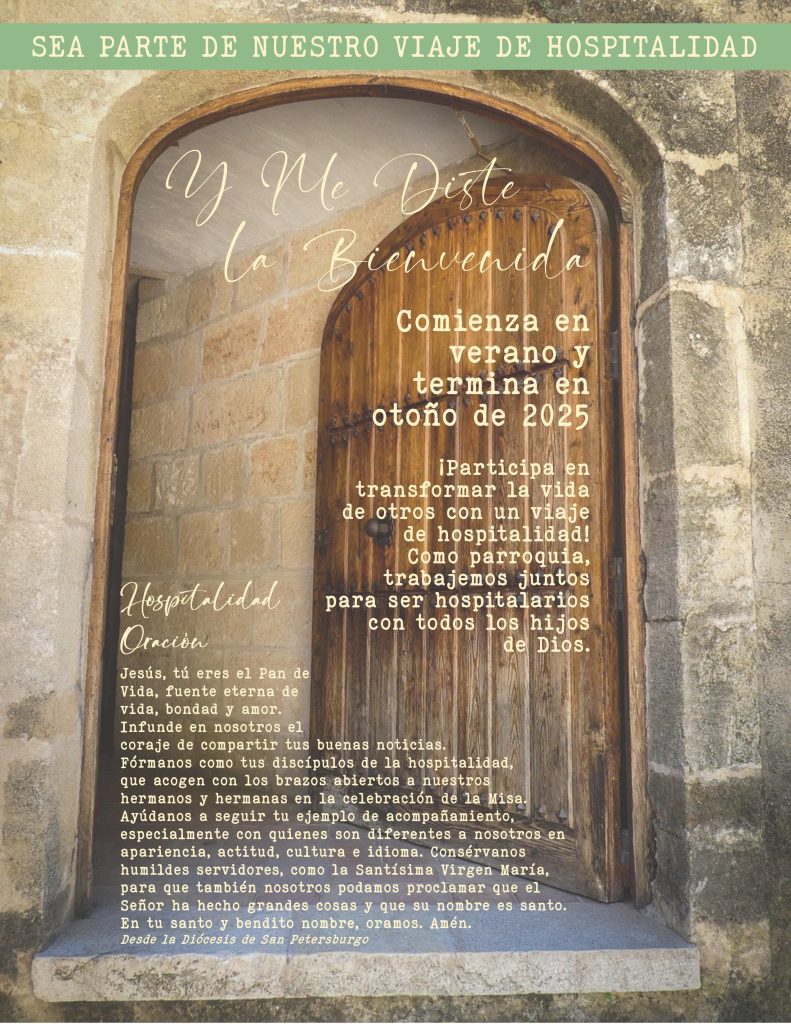 SEA PARTE DE NUESTRO VIAJE DE HOSPITALIDAD
Y Me Diste
la Bienvenida
Comienza en
verano y
termina en
otoño de 2025
¡Participa en
transformar la vida
de otros con un viaje
de hospitalidad!
Como parroquia,
trabajemos juntos
para ser hospitalarios
con todos los hijos
de Dios.
Hospitalidad
Oración
Jesús, tú eres el Pan de
Vida, fuente eterna de
vida, bondad y amor.
Infunde en nosotros el
coraje de compartir tus buenas noticias.
Fórmanos como tus discípulos de la hospitalidad,
que acogen con los brazos abiertos a nuestros
hermanos y hermanas en la celebración de la Misa.
Ayúdanos a seguir tu ejemplo de acompañamiento,
especialmente con quienes son diferentes a nosotros en
apariencia, actitud, cultura e idioma. Consérvanos
humildes servidores, como la Santísima Virgen María,
para que también nosotros podamos proclamar que el
Señor ha hecho grandes cosas y que su nombre es santo.
En tu santo y bendito nombre, oramos. Amén.
Desde la Diócesis de San Petersburgo